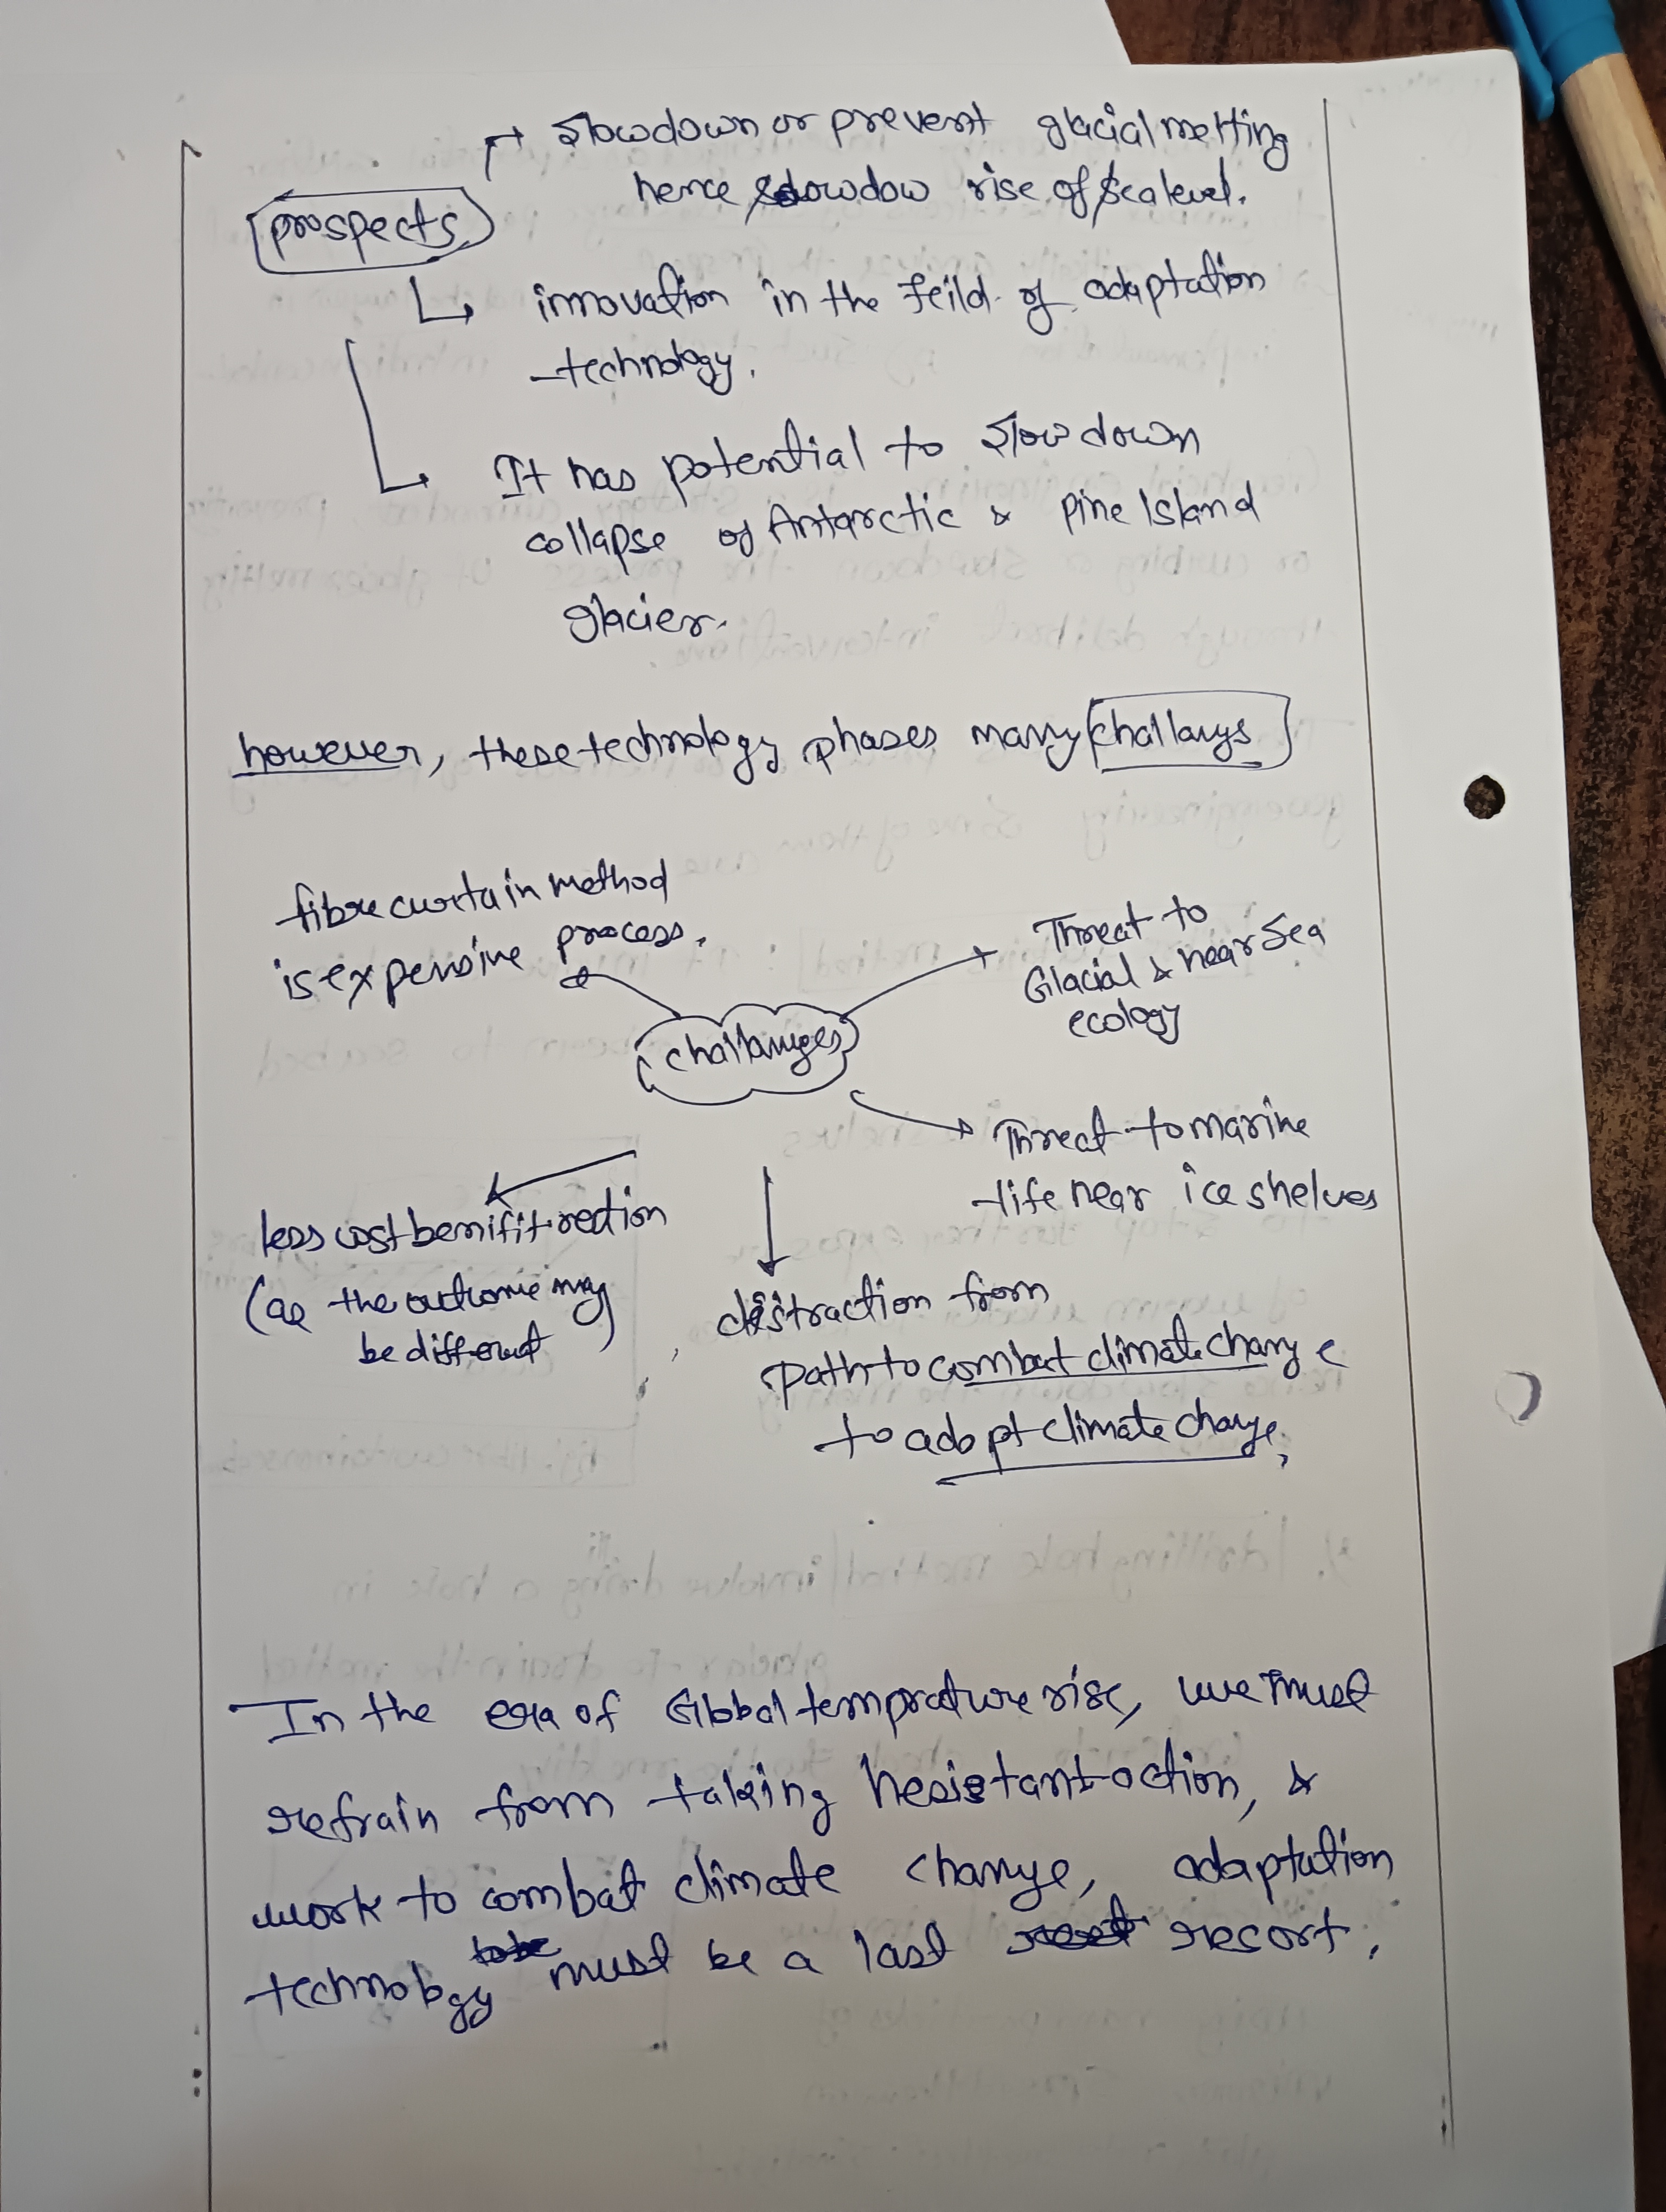 Slowdown or prevent glacial melting
hence slowdow rise of sea level.
prospects
innovation in the feild of adaptation
technology.
It has potential to slow down
collapse of Antarctic & Pine Island
glacier.
however, these technology phases many challangs
fibre curtain method
is expensive process.
Threat to
Glacial & near sea
ecology
challanges
Threat to marine
life near ice shelves
less cost benifit
(as the outcome may
be different)
distraction from
path to combat climate change
to adopt climate change.
In the era of Global temprature rise, we must
refrain from taking hesistant action, &
work to combat climate change, adaptation
technology must be a last resort.